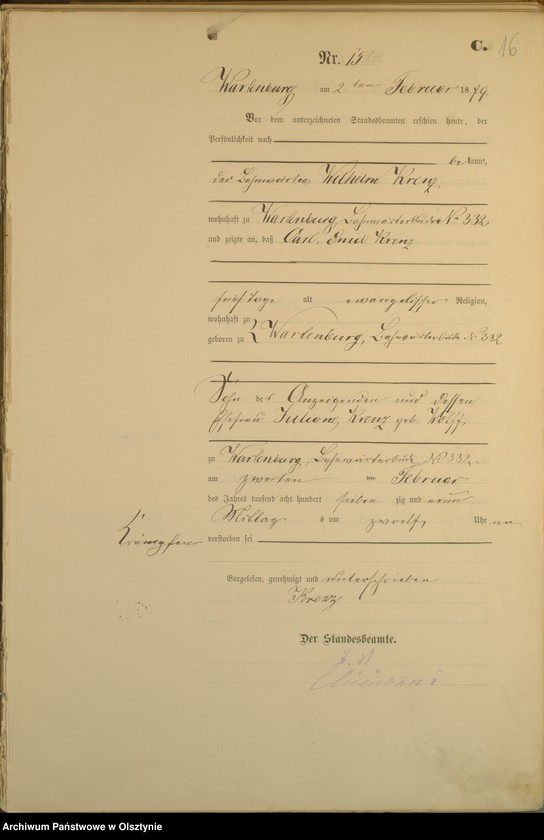 C. 16
Nr. 15
Wartenburg am 2 ten Februar 1879.
Vor dem unterzeichneten Standesbeamten erschien heute, der
Persönlichkeit nach
be kannt,
der Bahnwärter Wilhelm Krenz,
wohnhaft zu Wartenburg, Bahnwärterbude No 332
und zeigte an, daß Carl Emil Krenz
fünf Tage alt evangelischer Religion,
wohnhaft zu
geboren zu Wartenburg, Bahnwärterbude No 332
Sohn des Anzeigenden und dessen
Ehefrau Juliane, Krenz geb. Wolff,
zu Wartenburg, Bahnwärterbude No 332
am zweiten ten Februar
des Jahres tausend acht hundert sieben zig und neun
Mittag s um zwölf Uhr
Krämpfen verstorben sei
Vorgelesen, genehmigt und unterschrieben
Krenz
Der Standesbeamte.
Archiwum Państwowe w Olsztynie